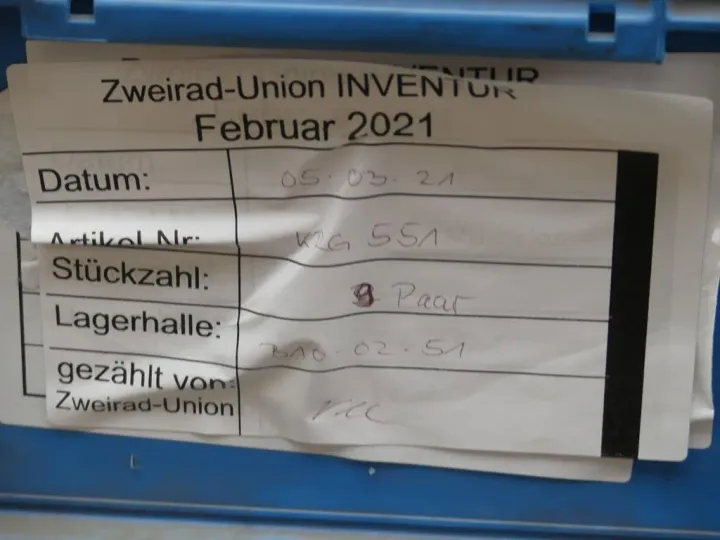 Zweirad-Union INVENTUR
Februar 2021
Datum: 05.03.21
Artikel Nr: K2G 551
Stückzahl: 9 Paar
Lagerhalle: B10.02.51
gezählt von:
Zweirad-Union